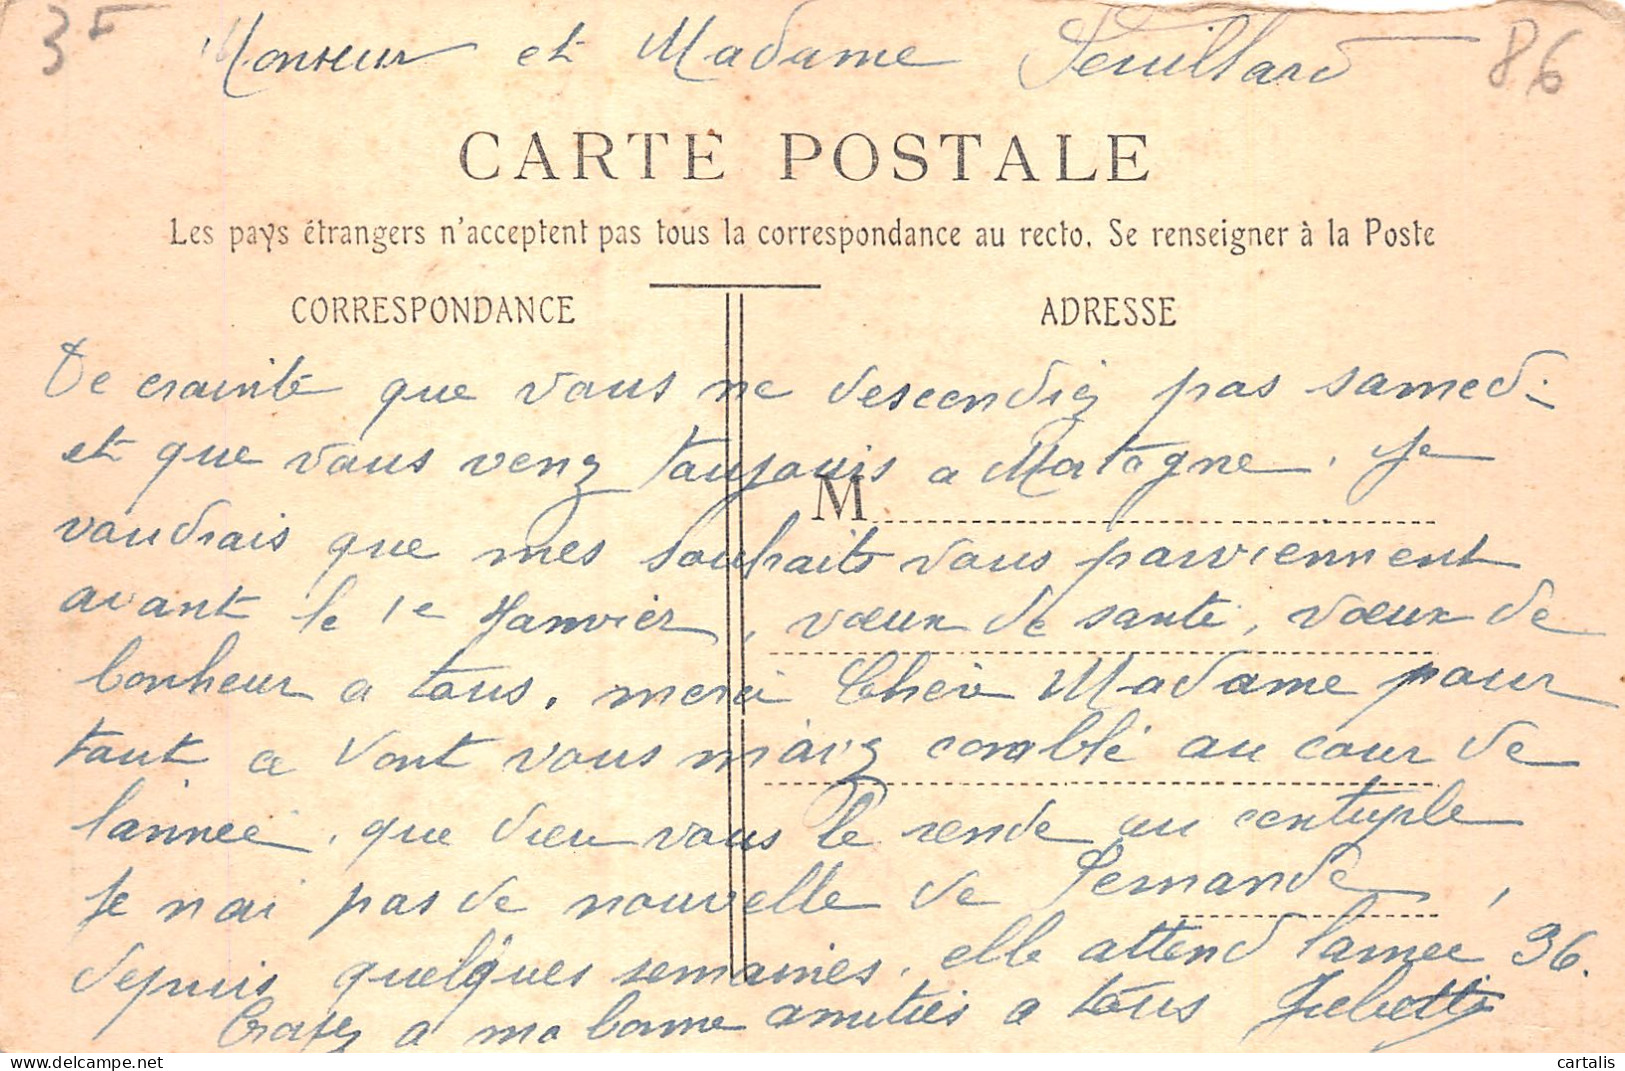 3F
86
Monsieur et Madame Feuillard
CARTE POSTALE
Les pays étrangers n'acceptent pas tous la correspondance au recto. Se renseigner à la Poste
CORRESPONDANCE
ADRESSE
M
De crainte que vous ne descendiez pas samedi
et que vous venez toujours a Matagne. Je
voudrais que mes souhaits vous parviennent
avant le 1e Janvier, vœux de santé, vœux de
bonheur a tous. merci Chère Madame pour
tout ce dont vous m'avez comblé au cour de
lannee, que dieu vous le rende au centuple
Je nai pas de nouvelle de Fernande,
depuis quelques semaines. elle attend lannee 36.
a ma bonne amitiés a tous
cartalis
www.delcampe.net